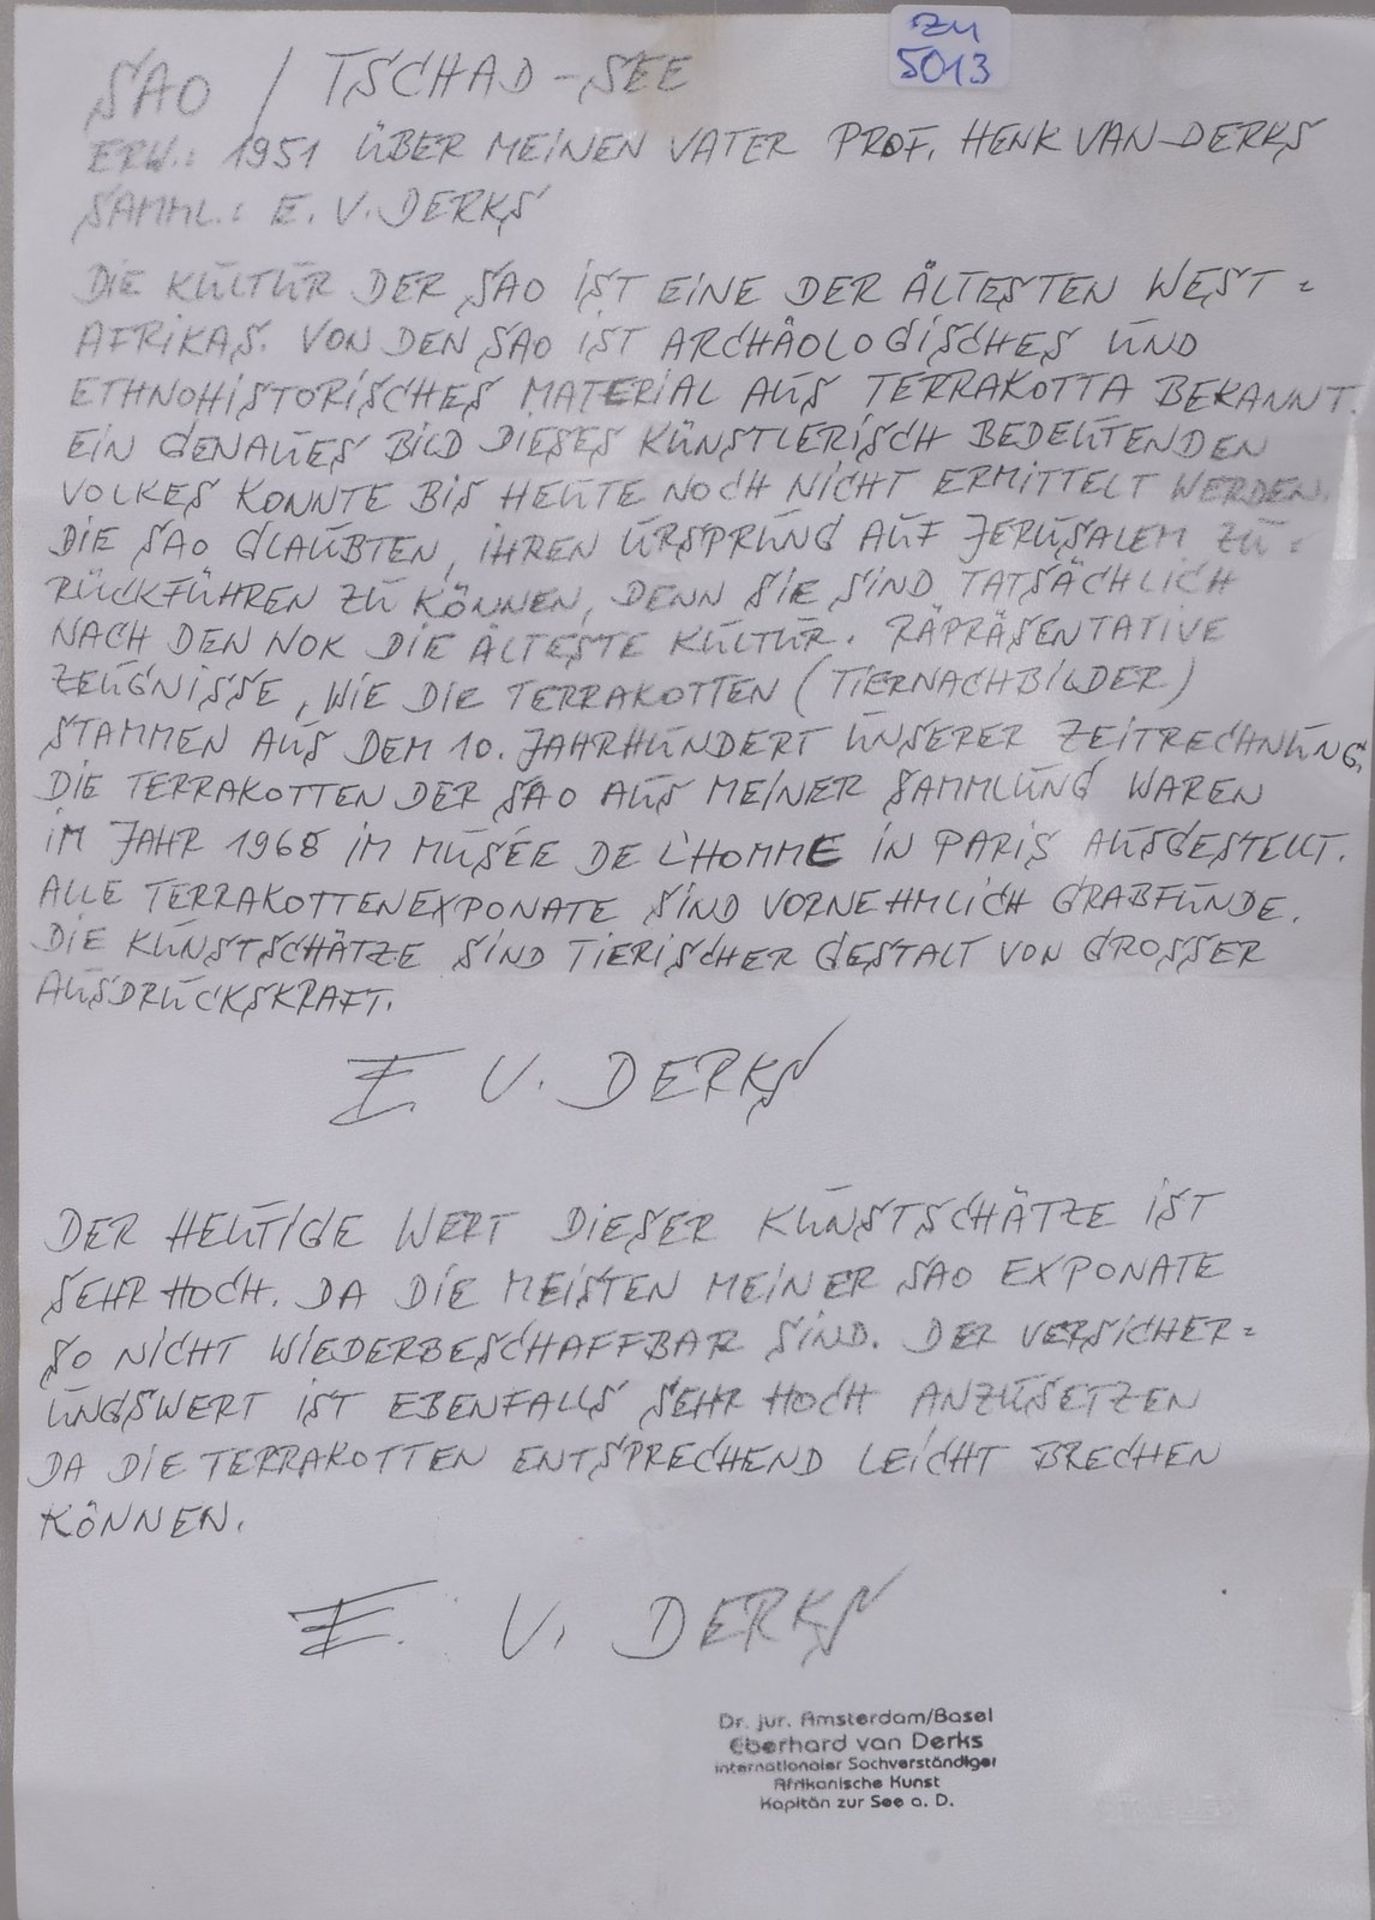 zu
5013
SAO / TSCHAD-SEE
ERW.: 1951 ÜBER MEINEN VATER PROF. HENK VAN DERKS
SAMML.: E. V. DERKS
DIE KULTUR DER SAO IST EINE DER ÄLTESTEN WEST=
AFRIKAS. VON DEN SAO IST ARCHÄOLOGISCHES UND
ETHNOHISTORISCHES MATERIAL AUS TERRAKOTTA BEKANNT.
EIN GENAUES BILD DIESES KÜNSTLERISCH BEDEUTENDEN
VOLKES KONNTE BIS HEUTE NOCH NICHT ERMITTELT WERDEN.
DIE SAO GLAUBTEN, IHREN URSPRUNG AUF JERUSALEM ZU=
RÜCKFÜHREN ZU KÖNNEN, DENN SIE SIND TATSÄCHLICH
NACH DEN NOK DIE ÄLTESTE KULTUR. RÄPRÄSENTATIVE
ZEUGNISSE, WIE DIE TERRAKOTTEN (TIERNACHBILDER)
STAMMEN AUS DEM 10. JAHRHUNDERT UNSERER ZEITRECHNUNG.
DIE TERRAKOTTEN DER SAO AUS MEINER SAMMLUNG WAREN
IM JAHR 1968 IM MUSÉE DE L'HOMME IN PARIS AUSGESTELLT.
ALLE TERRAKOTTENEXPONATE SIND VORNEHMLICH GRABFUNDE.
DIE KUNSTSCHÄTZE SIND TIERISCHER GESTALT VON GROSSER
AUSDRUCKSKRAFT.
E. V. DERKS
DER HEUTIGE WERT DIESER KUNSTSCHÄTZE IST
SEHR HOCH. DA DIE MEISTEN MEINER SAO EXPONATE
SO NICHT WIEDERBESCHAFFBAR SIND. DER VERSICHER=
UNGSWERT IST EBENFALLS SEHR HOCH ANZUSETZEN
DA DIE TERRAKOTTEN ENTSPRECHEND LEICHT BRECHEN
KÖNNEN.
E. V. DERKS
Dr. jur. Amsterdam/Basel
Eberhard van Derks
internationaler Sachverständiger
Afrikanische Kunst
Kapitän zur See a. D.